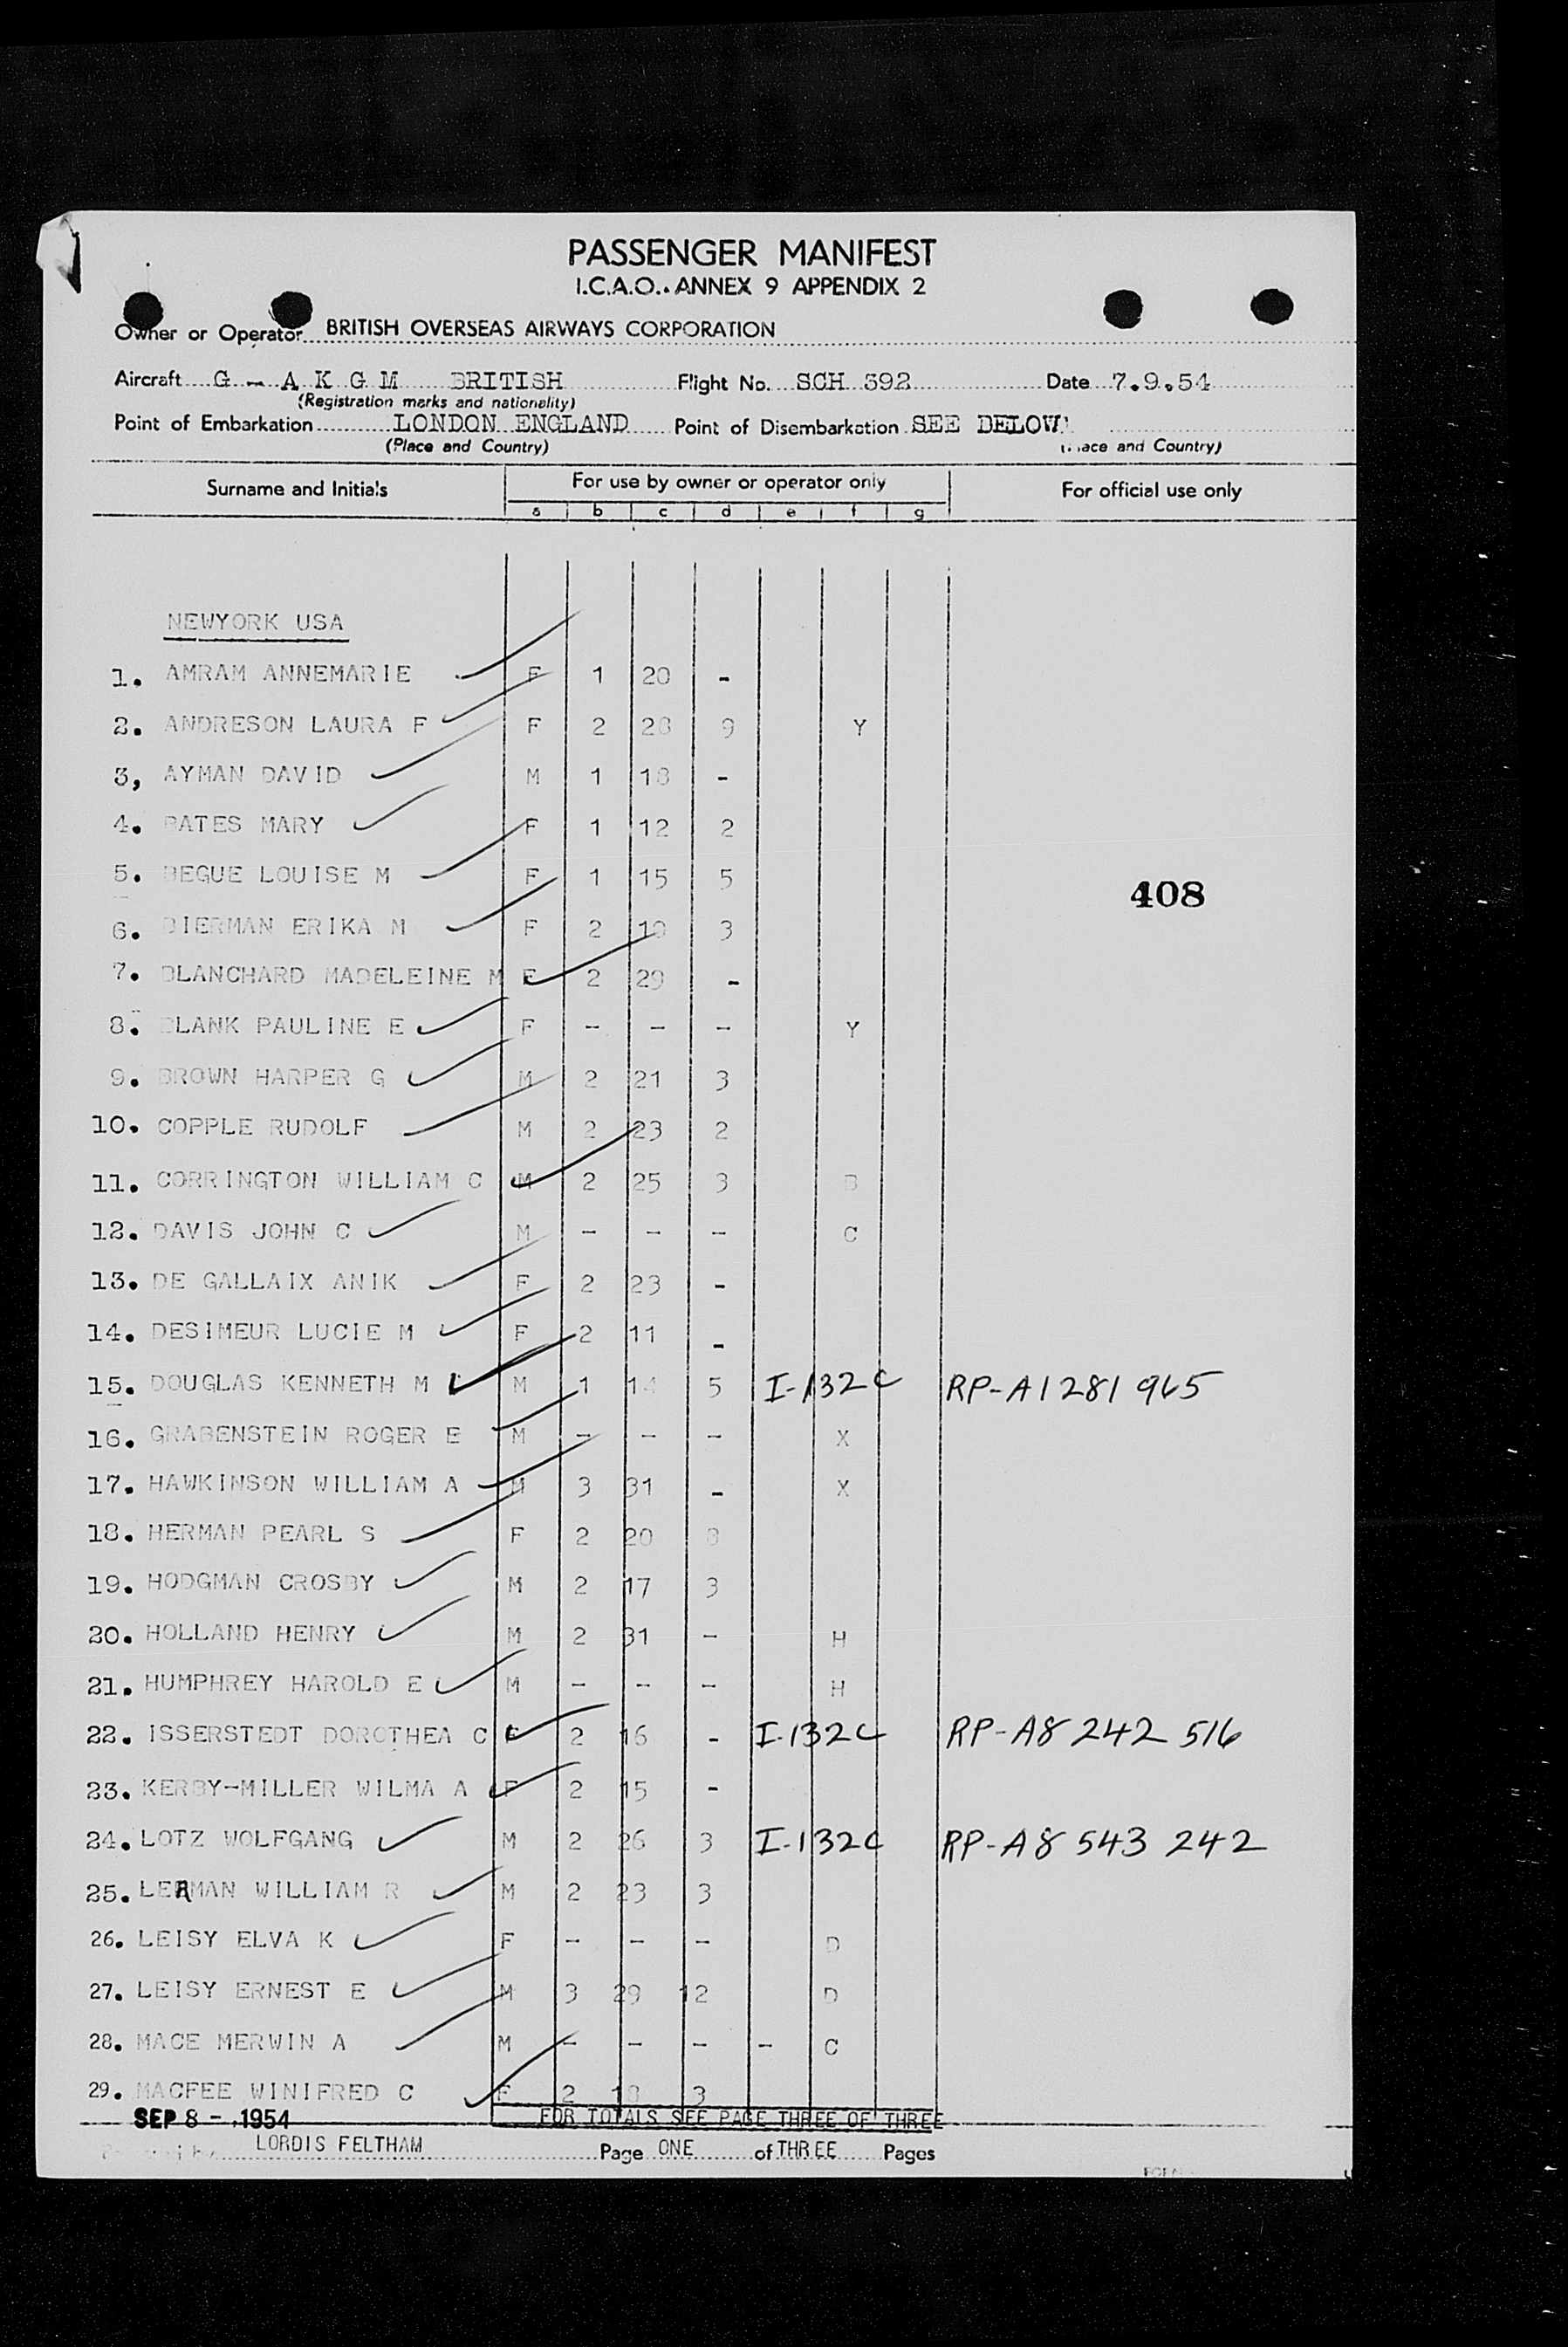 PASSENGER MANIFEST
I.C.A.O.. ANNEX 9 APPENDIX 2
Owner or Operator BRITISH OVERSEAS AIRWAYS CORPORATION
Aircraft G - A K G M BRITISH Flight No. SCH 592 Date 7.9.54
(Registration marks and nationality)
Point of Embarkation LONDON ENGLAND Point of Disembarkation SEE BELOW
(Place and Country) (Place and Country)
Surname and Initials For use by owner or operator only For official use only
a b c d e f g
NEWYORK USA
1. AMRAM ANNEMARIE F 1 20 -
2. ANDRESON LAURA F F 2 28 9 Y
3, AYMAN DAVID M 1 18 -
4. BATES MARY F 1 12 2
5. BEGUE LOUISE M F 1 15 5
408
6. BIERMAN ERIKA M F 2 19 3
7. BLANCHARD MADELEINE M F 2 29 -
8. BLANK PAULINE E F - - - Y
9. BROWN HARPER G M 2 21 3
10. COPPLE RUDOLF M 2 23 2
11. CORRINGTON WILLIAM C M 2 25 3 B
12. DAVIS JOHN C M - - - C
13. DE GALLAIX ANIK F 2 23 -
14. DESIMEUR LUCIE M F 2 11 -
15. DOUGLAS KENNETH M M 1 14 5 I-132C RP-A1281 965
16. GRABENSTEIN ROGER E M - - - X
17. HAWKINSON WILLIAM A M 3 31 - X
18. HERMAN PEARL S F 2 20 8
19. HODGMAN CROSBY M 2 17 3
20. HOLLAND HENRY M 2 31 - H
21. HUMPHREY HAROLD E M - - - H
22. ISSERSTEDT DOROTHEA C F 2 16 - I-132C RP-A8 242 516
23. KERBY-MILLER WILMA A F 2 15 -
24. LOTZ WOLFGANG M 2 26 3 I-132C RP-A8 543 242
25. LERMAN WILLIAM R M 2 23 3
26. LEISY ELVA K F - - - D
27. LEISY ERNEST E M 3 29 12 D
28. MACE MERWIN A M - - - - C
29. MACFEE WINIFRED C F 2 18 3
SEP 8 - 1954 FOR TOTALS SEE PAGE THREE OF THREE
LORDIS FELTHAM Page ONE of THREE Pages